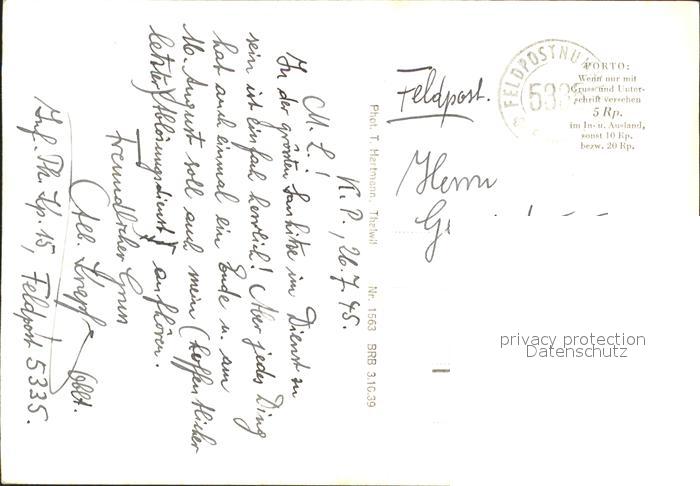 K.P., 26.7.45.
M. L.!
In der grössten Sauhitze im Dienst zu
sein ist einfach herrlich! Aber jedes Ding
hat auch einmal ein Ende u. am
16. August soll auch mein (hoffentlicher
letzter) Ablösungsdienst aufhören.
Freundlicher Gruss
Oblt.
Feldpost 5335.
Phot. T. Hartmann, Thalwil Nr. 1563 BRB 3.10.39
Feldpost.
Herrn
FELDPOSTNU
PORTO:
Wenn nur mit
Gruss und Unter-
schrift versehen
5 Rp.
im In- u. Ausland,
sonst 10 Rp.
bezw. 20 Rp.
privacy protection
Datenschutz